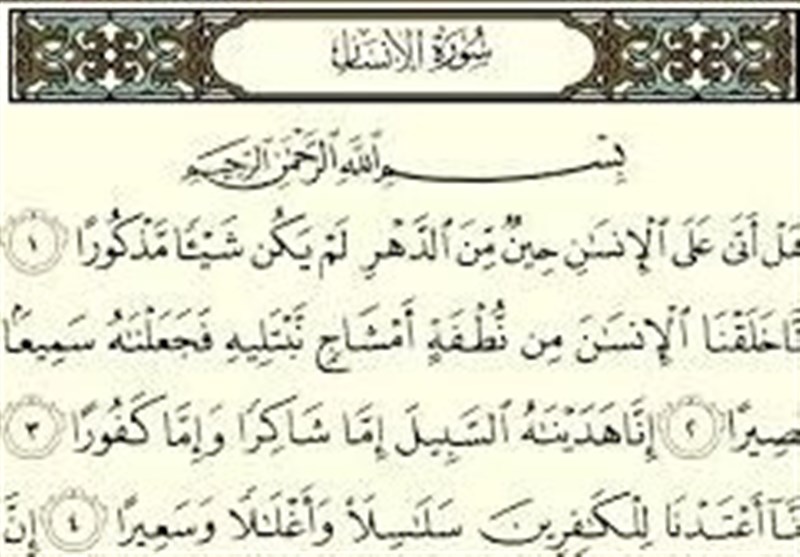 سُورَةُ الإِنسَانِ
بِسْمِ ٱللَّهِ ٱلرَّحْمَٰنِ ٱلرَّحِيمِ
هَلْ أَتَىٰ عَلَى ٱلْإِنسَٰنِ حِينٌ مِّنَ ٱلدَّهْرِ لَمْ يَكُن شَيْـًٔا مَّذْكُورًا ١
نَّا خَلَقْنَا ٱلْإِنسَٰنَ مِن نُّطْفَةٍ أَمْشَاجٍ نَّبْتَلِيهِ فَجَعَلْنَٰهُ سَمِيعًۢا
بَصِيرًا ٢ إِنَّا هَدَيْنَٰهُ ٱلسَّبِيلَ إِمَّا شَاكِرًا وَإِمَّا كَفُورًا ٣
نَّآ أَعْتَدْنَا لِلْكَٰفِرِينَ سَلَٰسِلَا۟ وَأَغْلَٰلًا وَسَعِيرًا ٤ إِنَّ